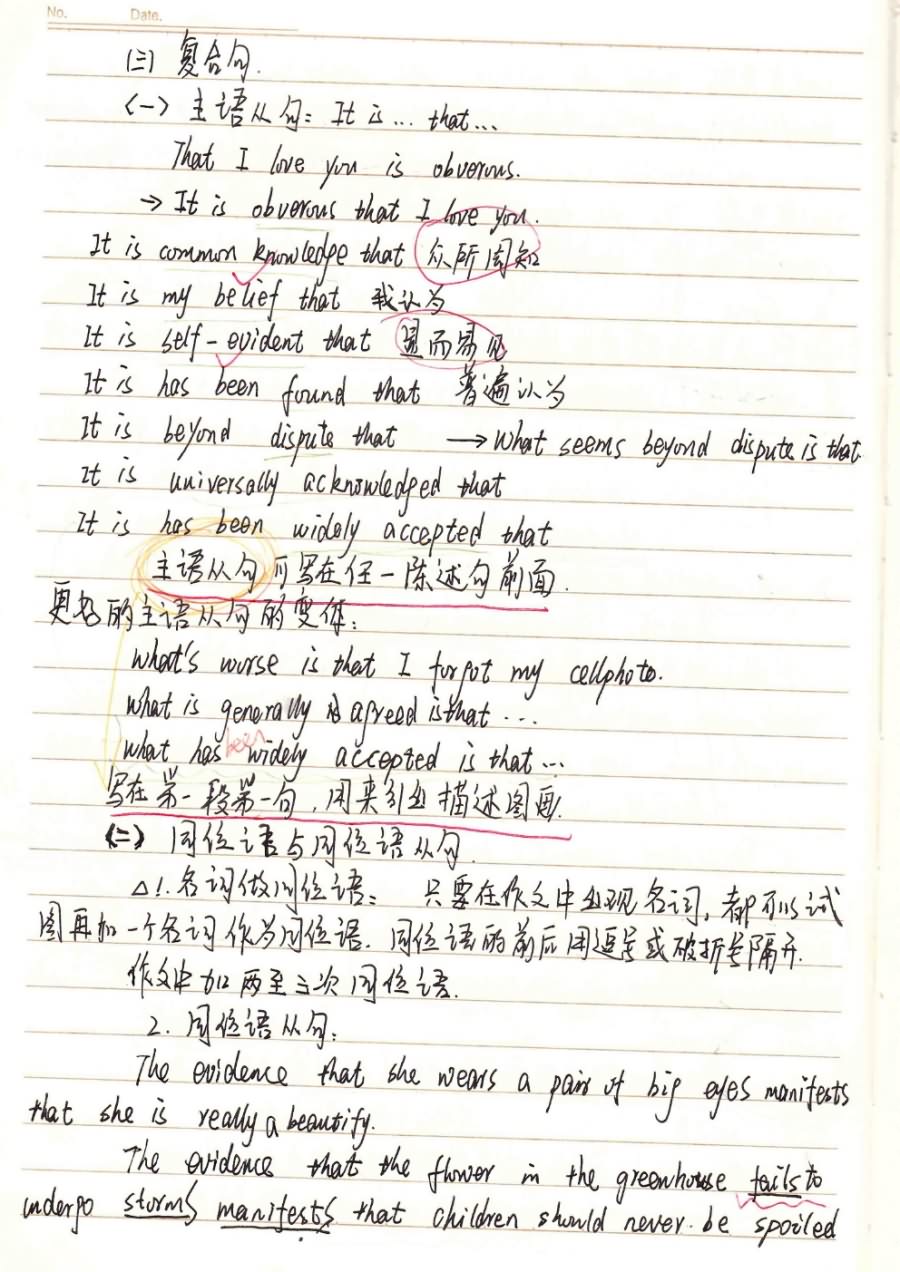 No. Date.
(三) 复合句.
<一> 主语从句: It is ... that...
That I love you is obverous.
→ It is obverous that I love you.
It is common knowledge that 众所周知
It is my belief that 我认为
It is self-evident that 显而易见
It is has been found that 普遍认为
It is beyond dispute that → What seems beyond dispute is that
It is universally acknowledged that
It is has been widely accepted that
主语从句可写在任一陈述句前面.
更好的主语从句的变体:
What's worse is that I forgot my cellphoto.
What is generally agreed is that ...
What has been widely accepted is that ...
写在第一段第一句,用来引出描述图画.
<二> 同位语与同位语从句.
△1. 名词做同位语: 只要在作文中出现名词,都可以试
图再加一个名词作为同位语. 同位语的前后用逗号或破折号隔开.
作文中加两至三次同位语.
2. 同位语从句:
The evidence that she wears a pair of big eyes manifests
that she is really a beautify.
The evidence that the flower in the greenhouse fails to
undergo storms manifests that children should never be spoiled